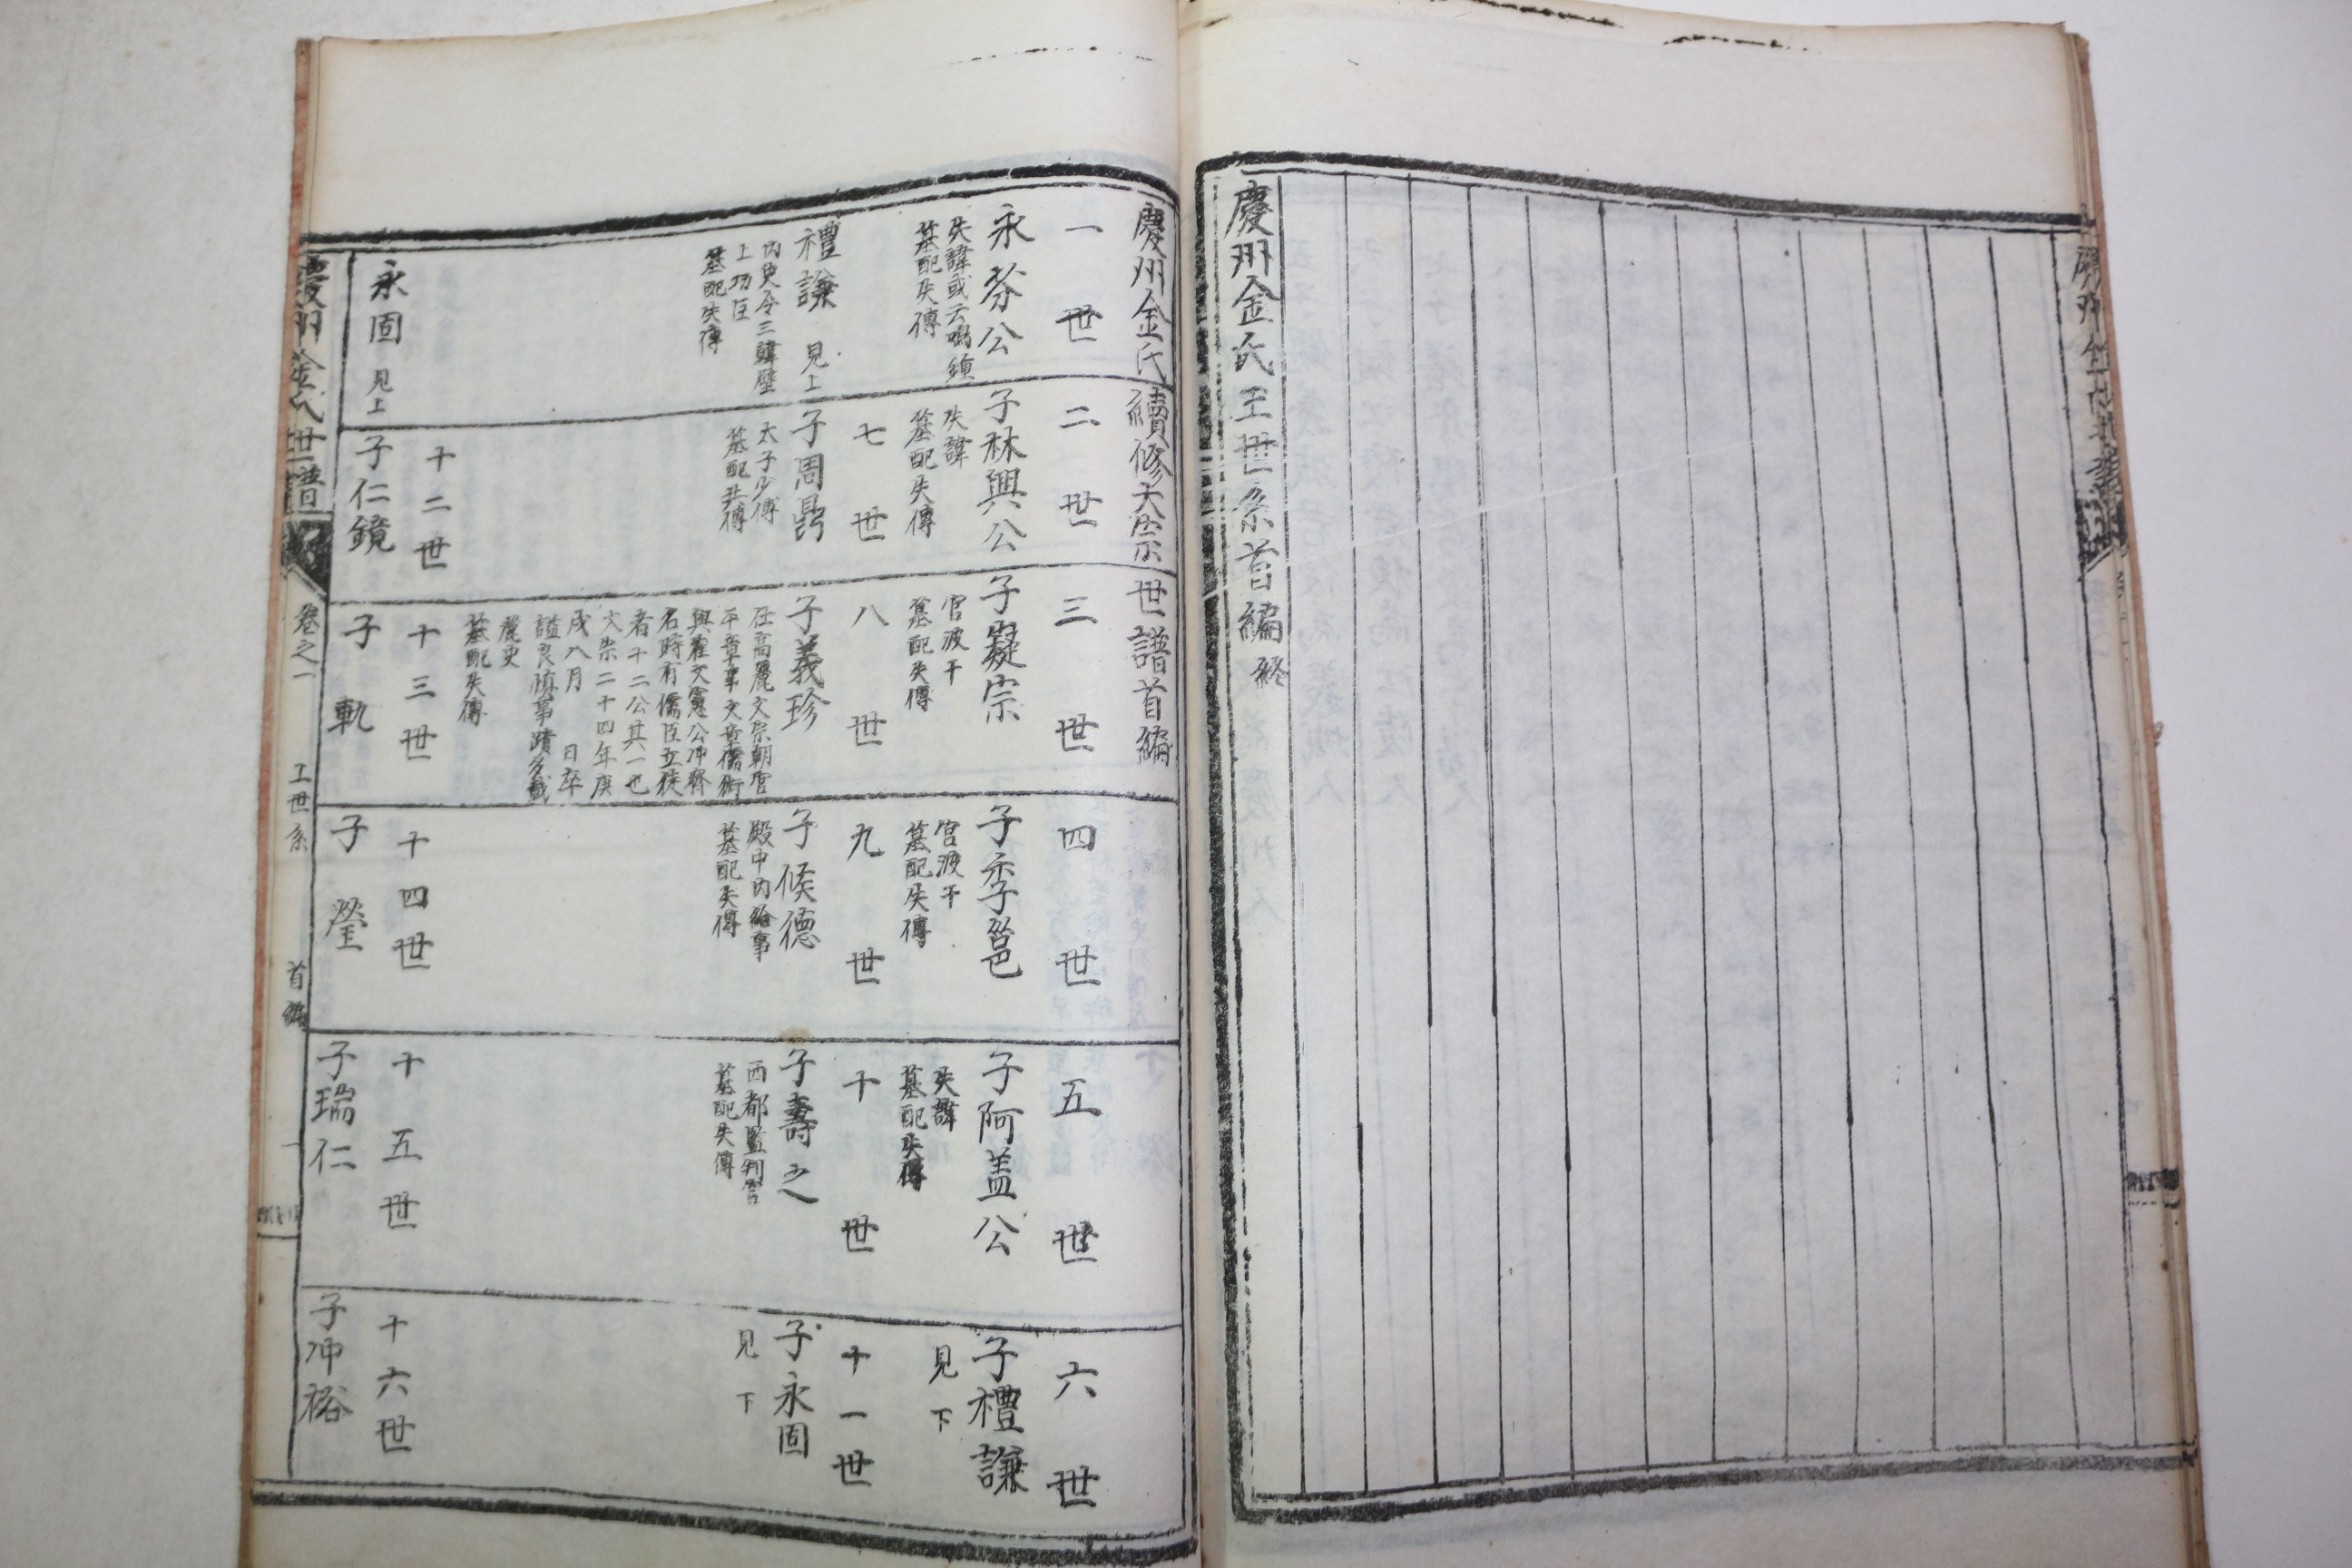 慶州金氏王世系首編 終
慶州金氏續修大宗世譜首編
一世
永芬公
失諱或云鳴鍾
墓配失傳
二世
子秝興公
失諱
墓配失傳
三世
子凝宗
官波干
墓配失傳
四世
子季鎰
官波干
墓配失傳
五世
子阿盖公
失諱
墓配失傳
六世
子禮謙
見下
禮謙 見上
內史令三韓壁
上功臣
墓配失傳
七世
子周鼎
太子少傅
墓配失傳
八世
子義珍
仕高麗文宗朝官
平章事文章儒術
與崔文憲公冲齊
名時有儒臣立徒
者十二公其一也
文宗二十四年庚
戌八月 日卒
諡良愼事蹟多載
麗史
墓配失傳
九世
子候德
殿中內給事
墓配失傳
十世
子壽之
西都監判官
墓配失傳
十一世
子永固
見下
永固 見上
十二世
子仁鏡
十三世
子軌
十四世
子瑩
十五世
子瑞仁
十六世
子冲裕
慶州金氏世譜 卷之一 王世系 首編 一